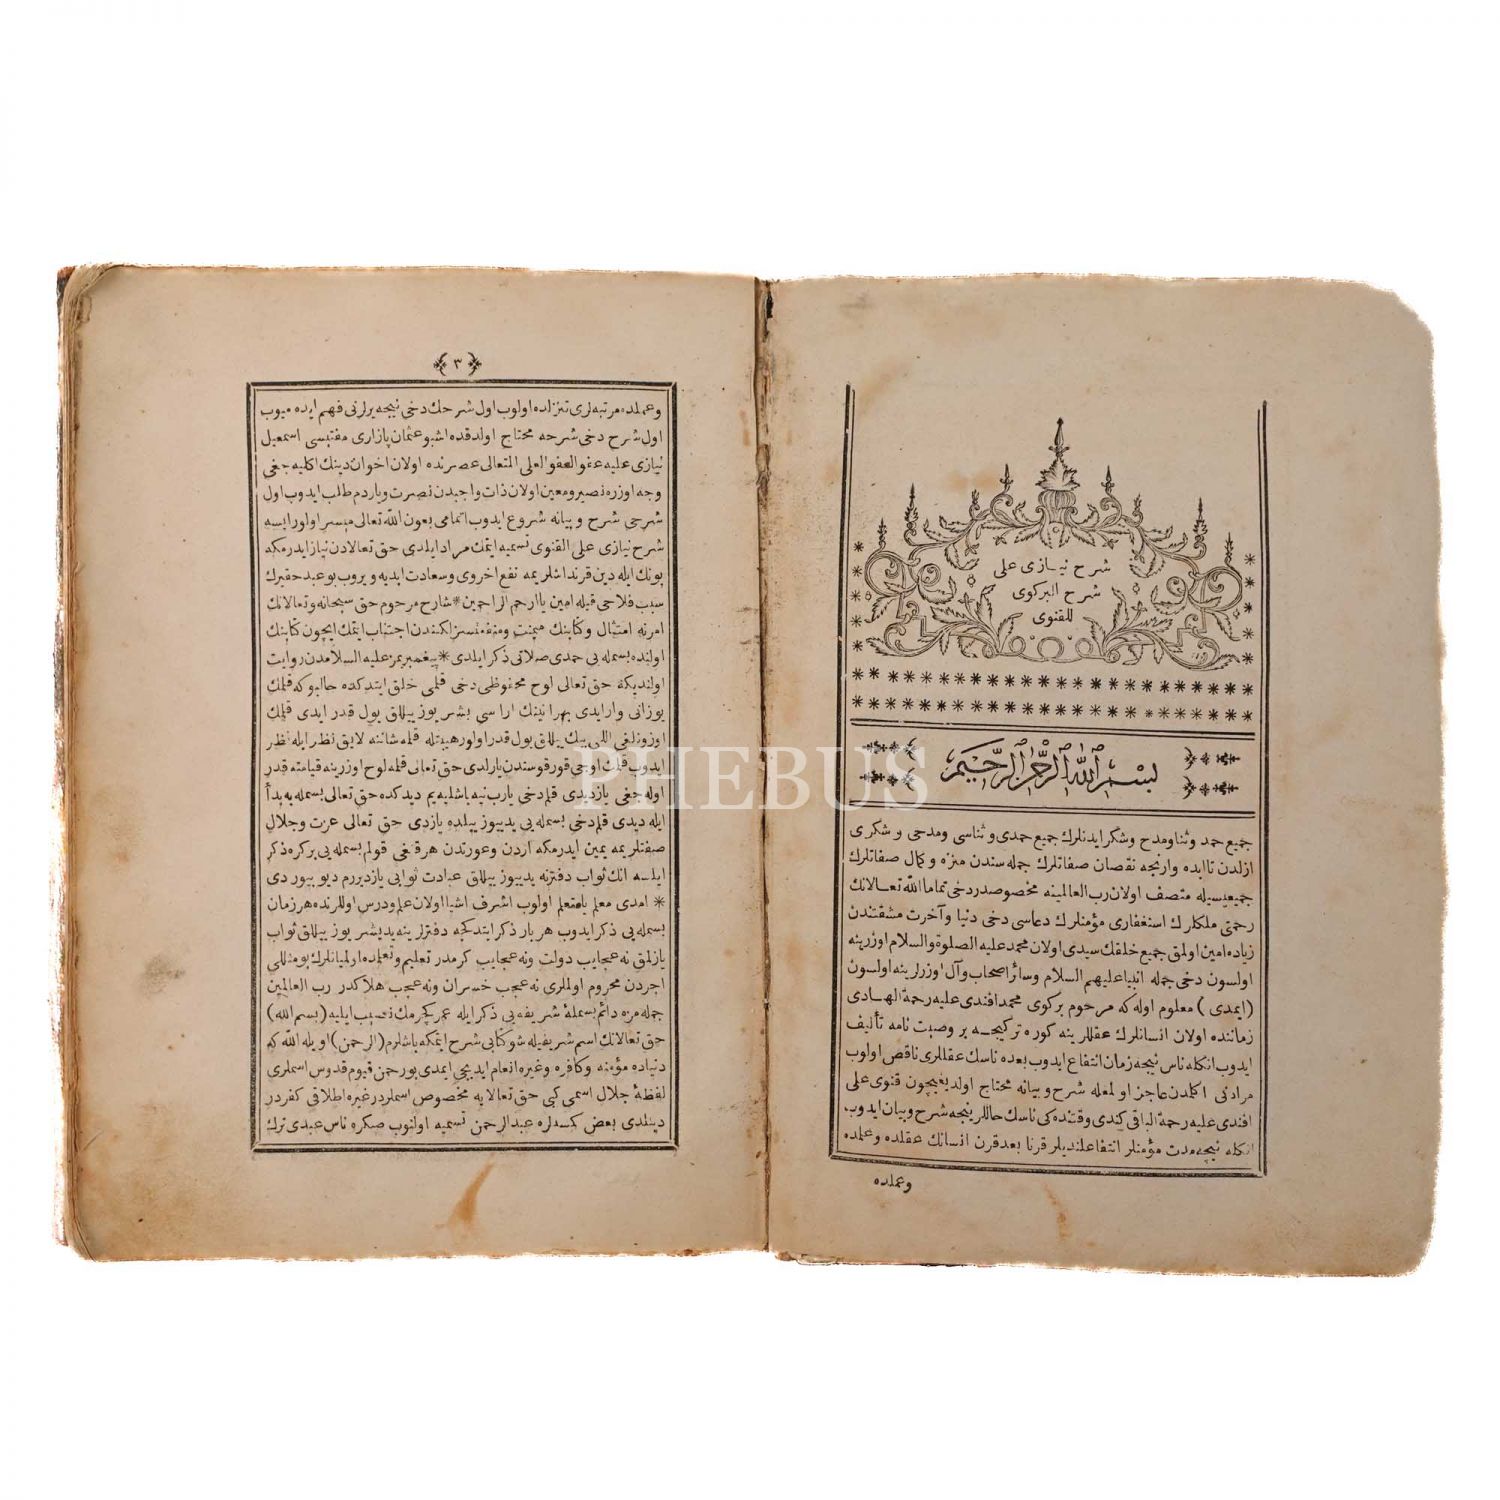 شرح نيازى على
شرح البركوى
للقنوى
بسم الله الرحمن الرحيم
جميع حمد و ثنا و مدح و شكر ايدنلرك جميع حمدى و ثناسى و مدحى و شكرى
ازلدن تا ابده وارنجه نقصان صفاتلرك جمله سندن منزه و كمال صفاتلرك
جميعيسيله متصف اولان رب العالمينه مخصوصدر دخى تماما الله تعالانك
رحمتى ملكلرك استغفارى مؤمنلرك دعاسى دخى دنيا و آخرت مشقتندن
زياده امين اولمق جميع خلقك سيدى اولان محمد عليه الصلوة والسلام اوزرينه
اولسون دخى جمله انبيا عليهم السلام وسائر اصحاب وآل اوزرلرينه اولسون
(ايمدى) معلوم اوله كه مرحوم بركوى محمد افندى عليه رحمة الهادى
زماننده اولان انسانلرك عقللرينه كوره تركيجه بر وصيت نامه تأليف
ايدوب انكله ناس نيجه زمان انتفاع ايدوب بعده ناسك عقللرى ناقص اولوب
مرادنى اكلمدن عاجز اولمغله شرح و بيانه محتاج اولديغيچون قنوى على
افندى عليه رحمة الباقى كندى وقتنده كى ناسك حاللرينجه شرح و بيان ايدوب
انكله نيچه مدت مؤمنلر انتفاعلنديلر قرنا بعد قرن انسانك عقلده و عملده
وعملده
٣
وعملده مرتبه لرى تنزلده اولوب اول شرحك دخى نيجه يرلرنى فهم ايده ميوب
اول شرح دخى شرحه محتاج اولدقده اشبو عثمان پازارى مفتيسى اسمعيل
نيازى عليه عفو العفو العلى المتعالى عصرنده اولان اخوان دينك اكليه جغى
وجه اوزره نصير و معين اولان ذات واجبدن نصرت و ياردم طلب ايدوب اول
شرحى شرح و بيانه شروع ايدوب اتمامى بعون الله تعالى ميسر اولورايسه
شرح نيازى على القنوى تسميه ايتمك مراد ايلدى حق تعالادن نياز ايدرمكه
بونك ايله دين قرنداشلريمه نفع اخروى و سعادت ابديه ويروب بو عبد حقيرك
سبب فلاحى قيله امين يا ارحم الراحمين * شارح مرحوم حق سبحانه وتعالانك
امرنه امتثال و كتابنك ميمنت و منفعتسزلكندن اجتناب ايتمك ايچون كتابنك
اولنده بسمله يى حمدى صلاتى ذكر ايلدى * پيغمبريمز عليه السلامدن روايت
اولنديكه حق تعالى لوح محفوظى دخى قلمى خلق ايتدكده حالبوكه قلمك
يوز انى وارايدى بهر ايكينك اراسى بشر يوز ييللق يول قدر ايدى قلمك
اوزونلغى اللى بيك ييللق يول قدر اولور هيبتله قلمه شاننه لايق نظر ايله نظر
ايدوب قلمك اوجى قورقوسندن يارلدى حق تعالى قلمه لوح اوزرينه قيامته قدر
اوله جغى يازديدى قلم دخى يارب نيه باشليه يم ديدكده حق تعالى بسمله يه بدأ
ايله ديدى قلم دخى بسمله يى يديوز ييلده يازدى حق تعالى عزت و جلال
صفتلريمه يمين ايدرمكه اردن و عورتدن هرقغى قولم بسمله يى بر كره ذكر
ايلسه انك ثواب دفترنه يديوز ييللق عبادت ثوابى يازديررم ديو بيوردى
* امدى معلم يا متعلم اولوب اشرف اشيا اولان علم و درس اوللرنده هر زمان
بسمله يى ذكر ايدوب هر بار ذكر ايتدكجه دفترلرينه يديشر يوز ييللق ثواب
يازلمق نه عجايب دولت ونه عجايب كرمدر تعليم و تعلمده اولميانلرك بو مثللى
اجردن محروم اولملرى نه عجب خسران ونه عجب هلاكدر رب العالمين
جمله مزه دائم بسملۀ شريفه يى ذكر ايله عمر كچرمك نصيب ايليه (بسم الله)
حق تعالانك اسم شريفيله شو كتابى شرح ايتمكه باشلرم (الرحمن) اويله الله كه
دنياده مؤمنه و كافره و غيره انعام ايديجى ايمدى بو رحمن قيوم قدوس اسملرى
لفظۀ جلال اسمى كبى حق تعالايه مخصوص اسملردر غيره اطلاقى كفردر
دينلدى بعض كمسه لره عبدالرحمن تسميه اولنوب صكره ناس عبدى ترك